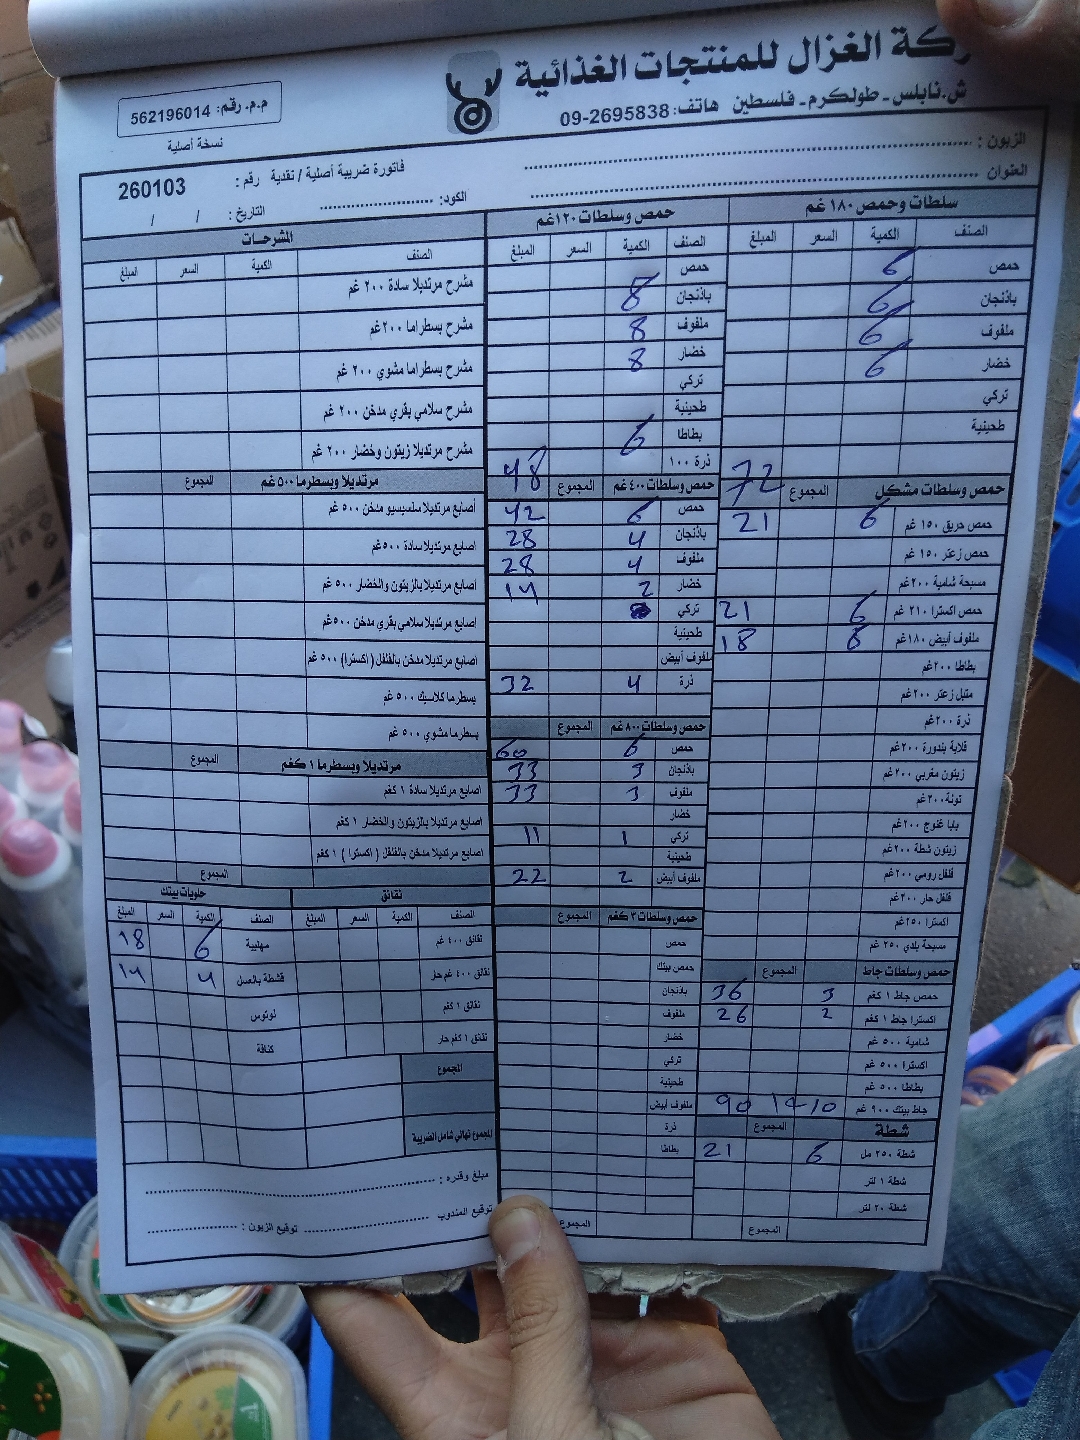 ركة الغزال للمنتجات الغذائية
ش.نابلس - طولكرم - فلسطين هاتف: 09-2695838
م.م. رقم: 562196014
نسخة أصلية
الزبون :
العنوان
فاتورة ضريبة أصلية / نقدية رقم : 260103
الكود:
التاريخ : / /
سلطات وحمص ١٨٠ غم
الصنف الكمية السعر المبلغ
حمص 6
باذنجان 6
ملفوف 6
خضار 6
تركي
طحينية
72
حمص وسلطات مشكل المجموع
حمص حريق ١٥٠ غم 6 21
حمص زعتر ١٥٠ غم
مسبحة شامية ٢٠٠غم
حمص اكسترا ٢١٠ غم 6 21
ملفوف أبيض ١٨٠غم 6 18
بطاطا ٢٠٠غم
متبل زعتر ٢٠٠غم
ذرة ٢٠٠غم
قلاية بندورة ٢٠٠غم
زيتون مغربي ٢٠٠غم
تونة ٢٠٠غم
بابا غنوج ٢٠٠غم
زيتون شطة ٢٠٠غم
فلفل رومي ٢٠٠غم
فلفل حار ٢٠٠غم
اكسترا ٢٥٠غم
مسبحة بلدي ٢٥٠ غم
حمص وسلطات جاط المجموع
حمص جاط ١ كغم 3 36
اكسترا جاط ١ كغم 2 26
شامية ٥٠٠ غم
اكسترا ٥٠٠ غم
بطاطا ٥٠٠ غم
جاط بيتك ٩٠٠ غم 90
شطة المجموع
شطة ٢٥٠ مل 6 21
شطة ١ لتر
شطة ٢٠ لتر
المجموع
حمص وسلطات ١٢٠غم
الصنف الكمية السعر المبلغ
حمص 8
باذنجان
ملفوف 8
خضار 8
تركي
طحينية
بطاطا 6
ذرة ١٠٠ 48
حمص وسلطات ٤٠٠غم المجموع
حمص 6 42
باذنجان 4 28
ملفوف 4 28
خضار 2 14
تركي
طحينية
ملفوف أبيض
ذرة 4 32
حمص وسلطات ٨٠٠غم المجموع
حمص 6 60
باذنجان 3 33
ملفوف 3 33
خضار
تركي 1 11
طحينية
ملفوف أبيض 2 22
حمص وسلطات ٣ كغم المجموع
حمص
حمص بيتك
باذنجان
ملفوف
خضار
تركي
طحينية
ملفوف أبيض
ذرة
بطاطا
المجموع
المشرحات
الصنف الكمية السعر المبلغ
مشرح مرتديلا سادة ٢٠٠ غم
مشرح بسطراما ٢٠٠غم
مشرح بسطراما مشوي ٢٠٠ غم
مشرح سلامي بقري مدخن ٢٠٠ غم
مشرح مرتديلا زيتون وخضار ٢٠٠ غم
مرتديلا وبسطرما ٥٠٠غم المجموع
أصابع مرتديلا سلسيسيو مدخن ٥٠٠ غم
اصابع مرتديلا سادة ٥٠٠غم
اصابع مرتديلا بالزيتون والخضار ٥٠٠ غم
اصابع مرتديلا سلامي بقري مدخن ٥٠٠غم
اصابع مرتديلا مدخن بالفلفل ( اكسترا ) ٥٠٠ غم
بسطرما كلاسيك ٥٠٠ غم
بسطرما مشوي ٥٠٠ غم
مرتديلا وبسطرما ١ كغم المجموع
اصابع مرتديلا سادة ١ كغم
اصابع مرتديلا بالزيتون والخضار ١ كغم
اصابع مرتديلا مدخن بالفلفل ( اكسترا ) ١ كغم
المجموع
نقانق
الصنف الكمية السعر المبلغ
نقانق ٤٠٠ غم
نقانق ٤٠٠ غم حار
نقانق ١ كغم
نقانق ١ كغم حار
المجموع
المجموع نهائي شامل الضريبة
حلويات بيتك
الصنف الكمية السعر المبلغ
مهلبية 6 18
قشطة بالعسل 4 14
لوتوس
كنافة
مبلغ وقدره :
توقيع المندوب
توقيع الزبون :